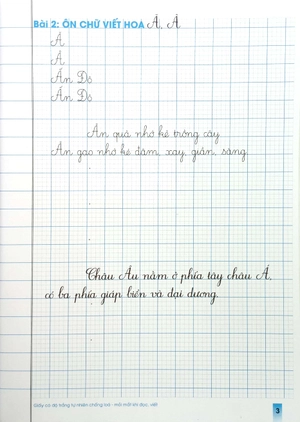 Bài 2: ÔN CHỮ VIẾT HOA Ă, Â
Ă
Â
Ấn Độ
Ấn Độ
Ăn quả nhớ kẻ trồng cây
Ăn gạo nhớ kẻ đâm, xay, giần, sàng.
Châu Âu nằm ở phía tây châu Á,
có ba phía giáp biển và đại dương.
Giấy có độ trắng tự nhiên chống loá - mỏi mắt khi đọc, viết
3